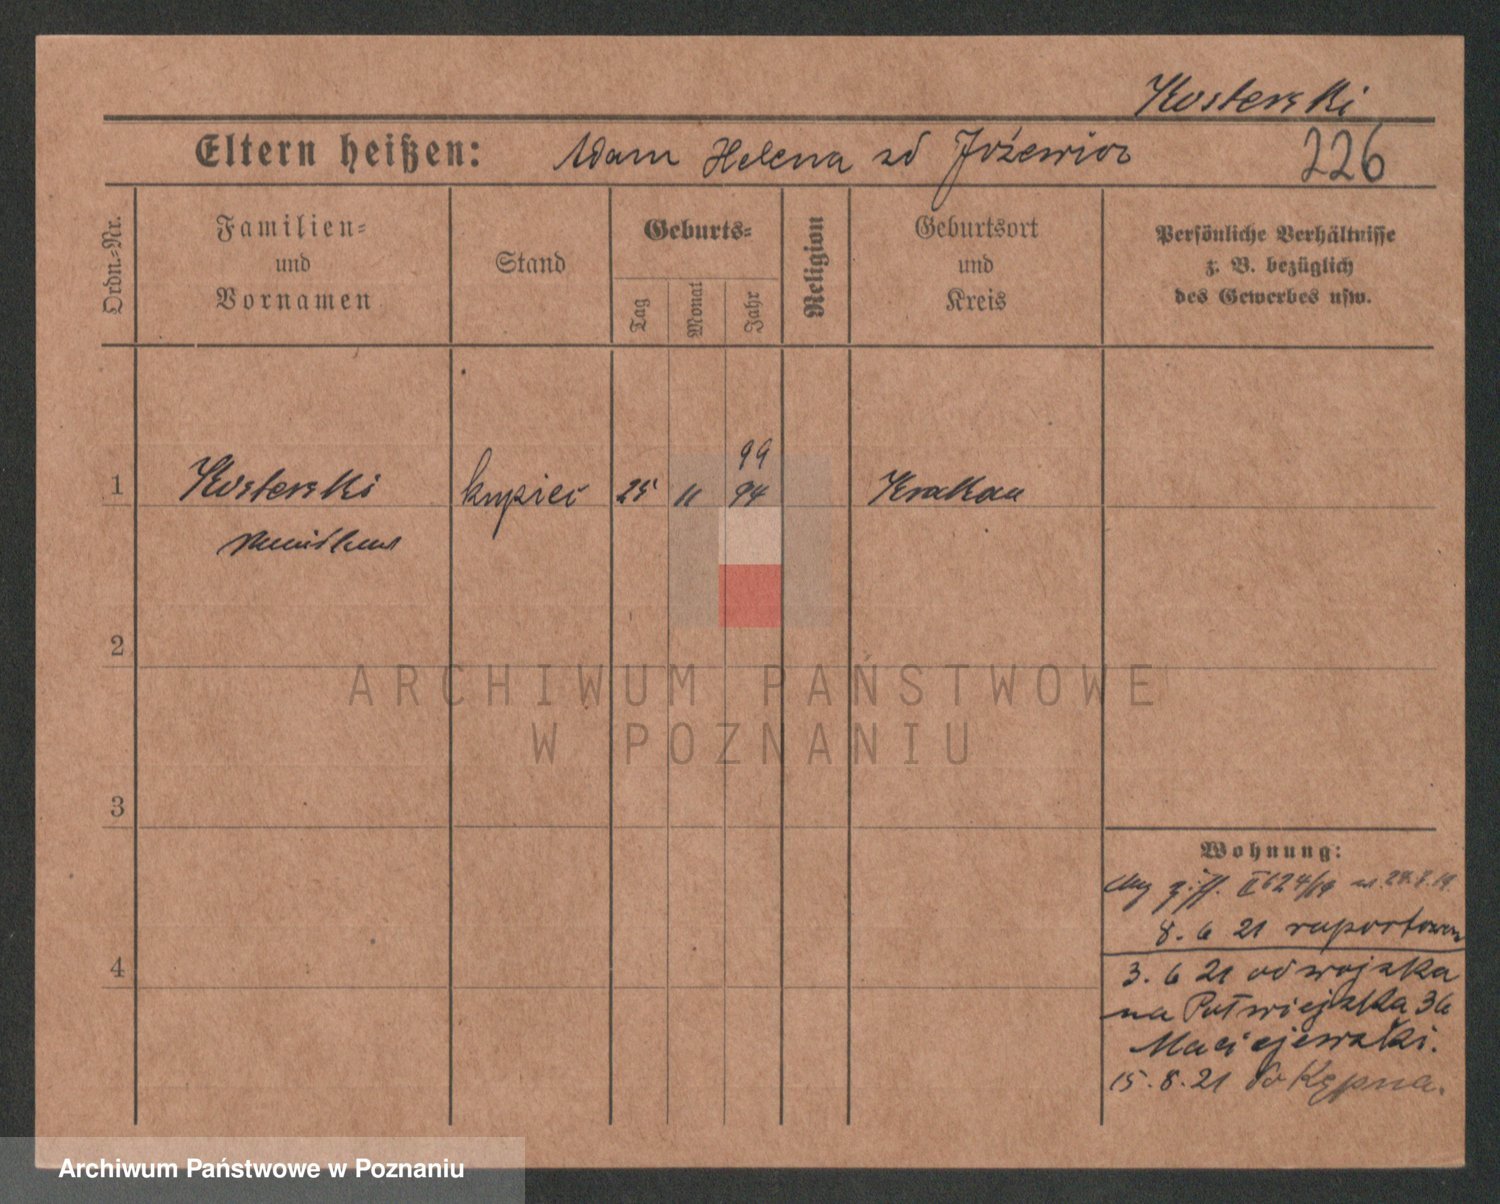 Kosterski
Eltern heißen: Adam Helena zd Józewicz 226
Ordn.-Nr.
Familien-
und
Vornamen
Stand
Geburts-
Tag
Monat
Jahr
Religion
Geburtsort
und
Kreis
Persönliche Verhältnisse
z. B. bezüglich
des Gewerbes usw.
99
1 Kosterski kupiec 25 11 94 Krakau
2
ARCHIWUM PAŃSTWOWE
W POZNANIU
3
Wohnung:
II 624/19
8. 6 21 raportowan
4
3. 6 21 od wojska
na Półwiejska 36
Maciejewski.
15. 8. 21 do Kępna.
Archiwum Państwowe w Poznaniu